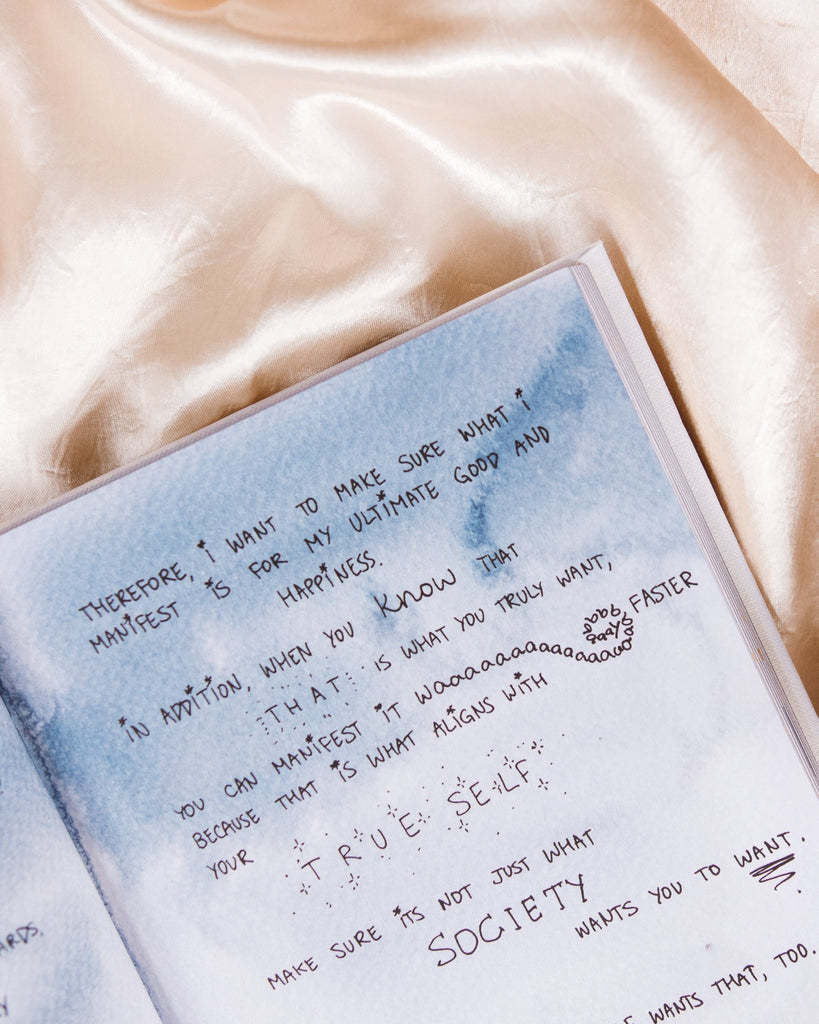 ARDS.
THEREFORE, i WANT TO MAKE SURE WHAT i
MANiFEST iS FOR MY ULTiMATE GOOD AND
HAPPiNESS.
iN ADDiTiON, WHEN YOU KNOW THAT
THAT iS WHAT YOU TRULY WANT,
YOU CAN MANiFEST iT FASTER
BECAUSE THAT iS WHAT ALiGNS WiTH
YOUR TRUE SELF
MAKE SURE iTS NOT JUST WHAT
SOCIETY WANTS YOU TO WANT.
WANTS THAT, TOO.